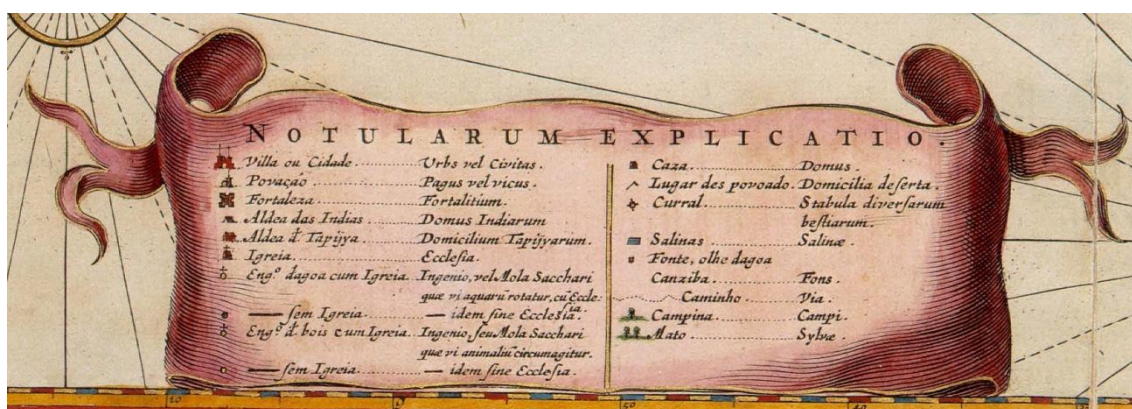 NOTULARUM EXPLICATIO.
Villa ou Cidade ............ Urbs vel Civitas.
Povação ............ Pagus vel vicus.
Fortaleza ............ Fortalitium.
Aldea das Indias ............ Domus Indiarum
Aldea d̃ Tapijya ............ Domicilium Tapijyarum.
Igreia ............ Ecclesia.
Eng.º dagoa cum Igreia. Ingenio, vel Mola Sacchari
quæ vi aquarũ rotatur, cũ Eccle:
sia.
—— sem Igreia ............ — idem sine Ecclesia.
Eng.º d̃ bois cum Igreia. Ingenio, seu Mola Sacchari
quæ vi animaliũ circumagitur.
—— sem Igreia ............ — idem sine Ecclesia.
Caza ............ Domus.
Lugar des povoado. Domicilia deserta.
Curral ............ Stabula diversarum
bestiarum.
Salinas ............ Salinæ.
Fonte, olhe dagoa
Canziba ............ Fons.
Caminho ............ Via.
Campina ............ Campi.
Mato ............ Sylvæ.
10
9
50